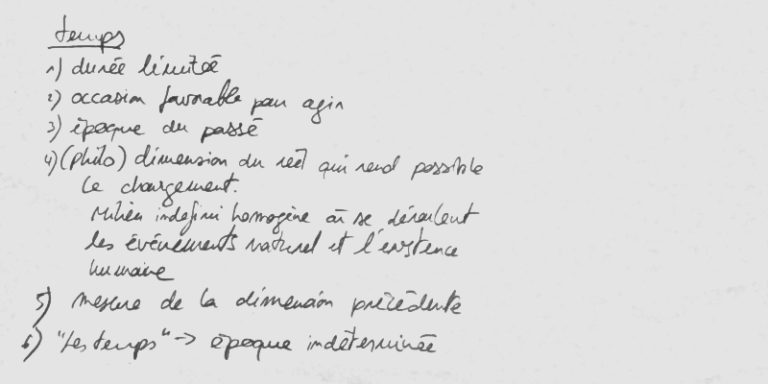 temps
1) durée limitée
2) occasion favorable pour agir
3) époque du passé
4) (philo) dimension du réel qui rend possible
le changement.
Milieu indéfini homogène où se déroulent
les événements naturel et l'existence
humaine
5) mesure de la dimension précédente
6) "les temps" -> époque indéterminée